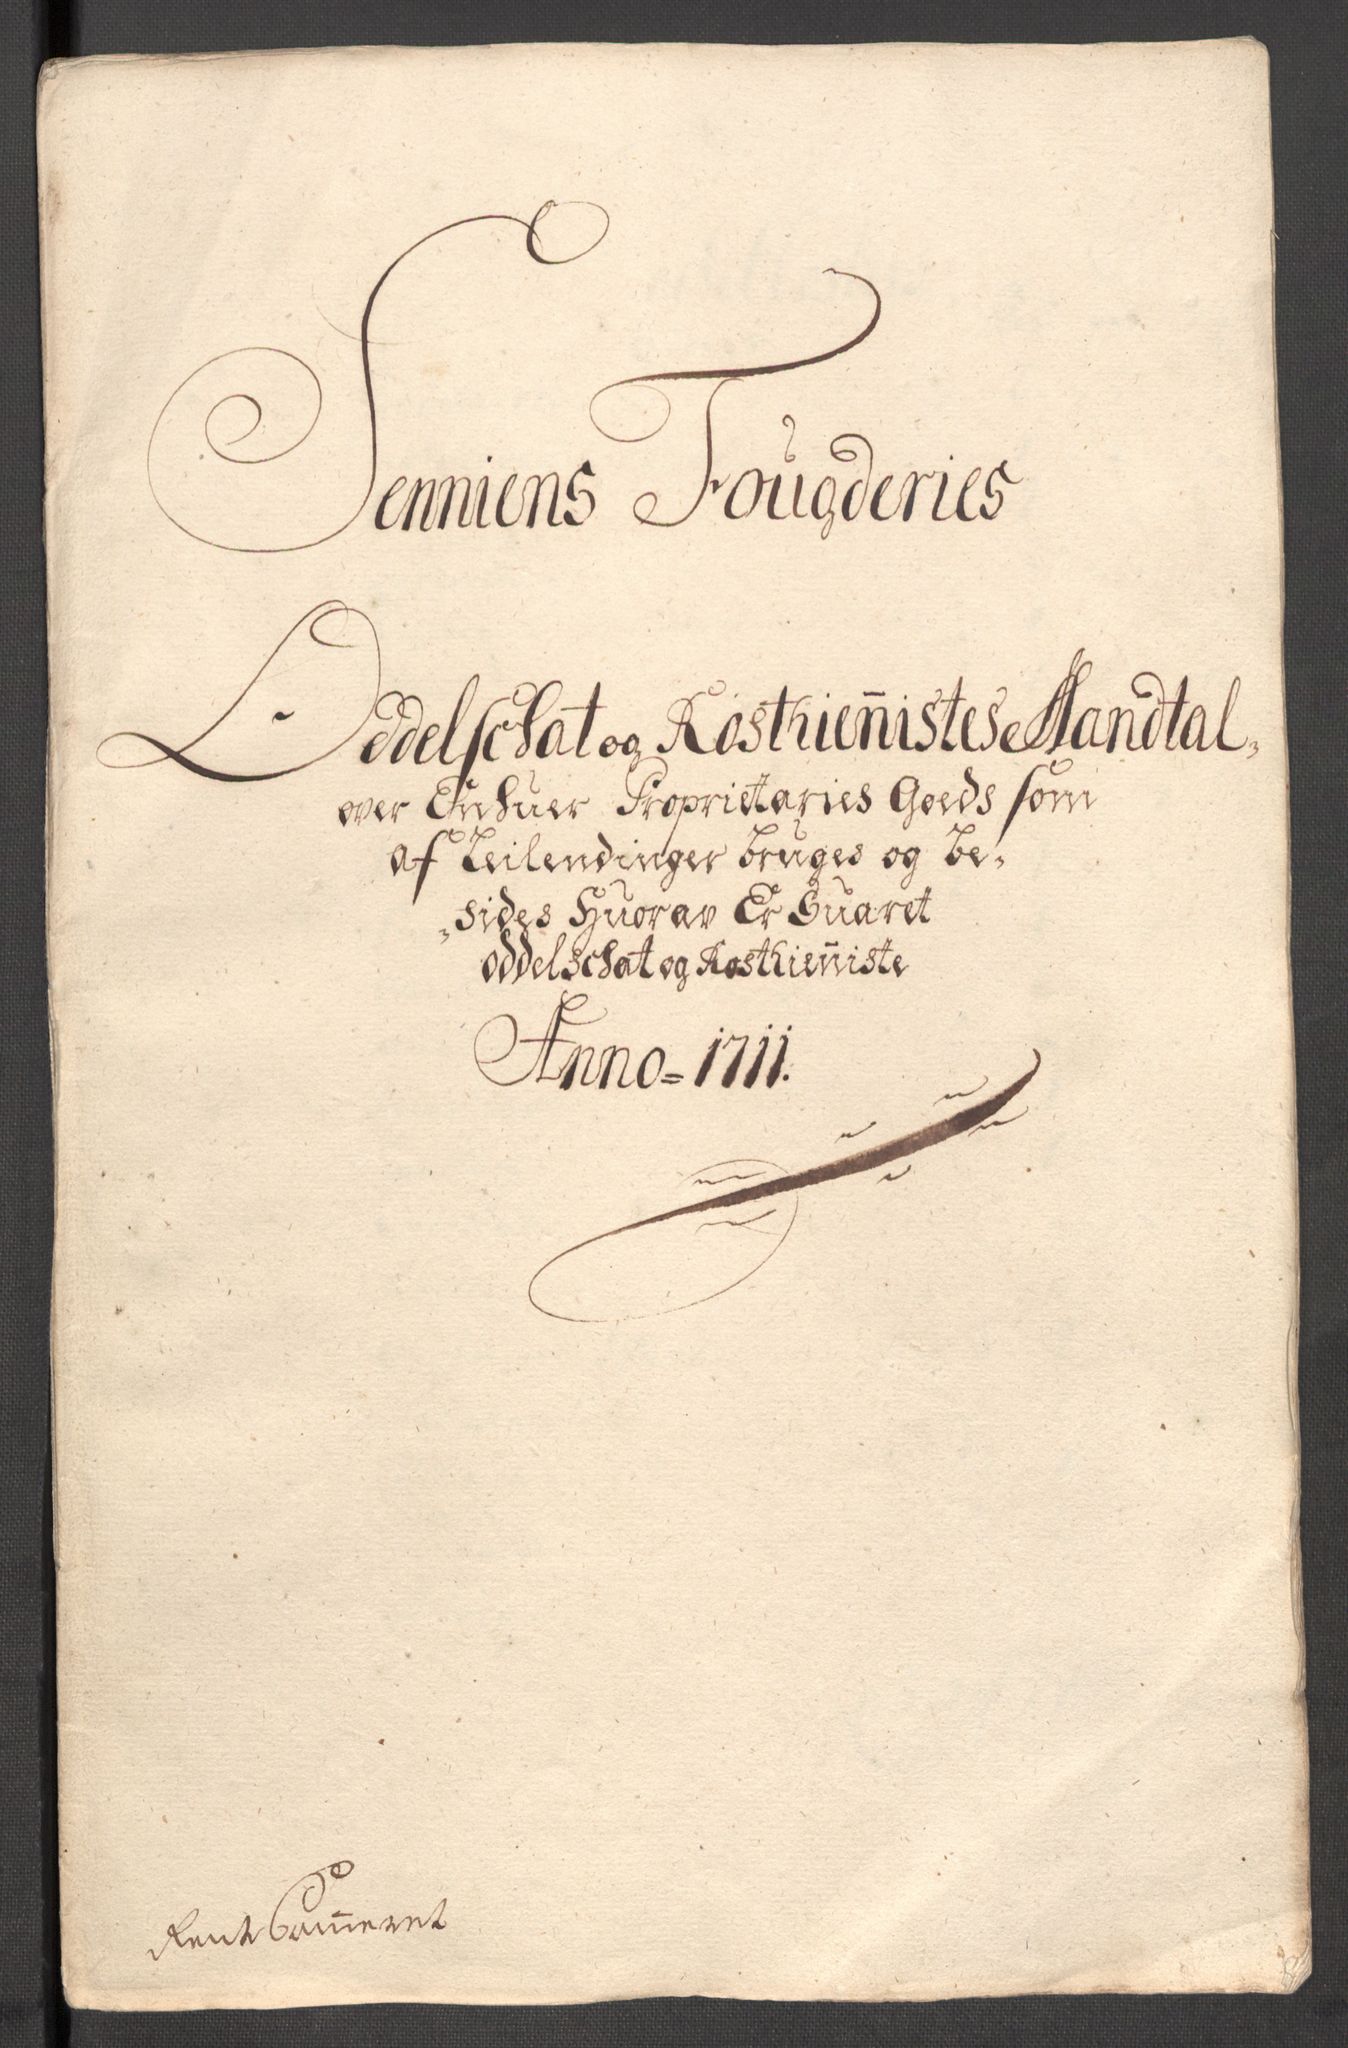 Senniens Fougderies
Oddelschat og Rosthien̄istes Mandtal
over Enhuer Proprietaries Goeds som
af Leilendinger bruges og be„
„sides Huorav Er Suaret
oddelschat og Rosthien̄iste
Anno= 1711.
Rent Cam̄eret